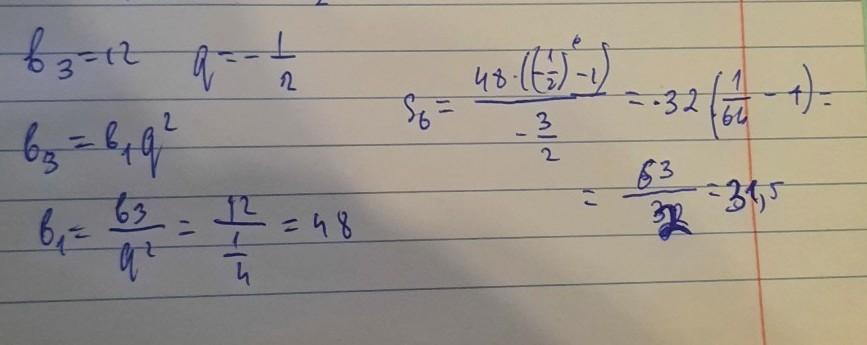 b₃ = 12 q = -1/2
b₃ = b₁q²
b₁ = b₃/q² = 12/(1/4) = 48
S₆ = 48·((-1/2)⁶-1)/(-3/2) = -32(1/64 - 1) =
= 63/2 = 31,5